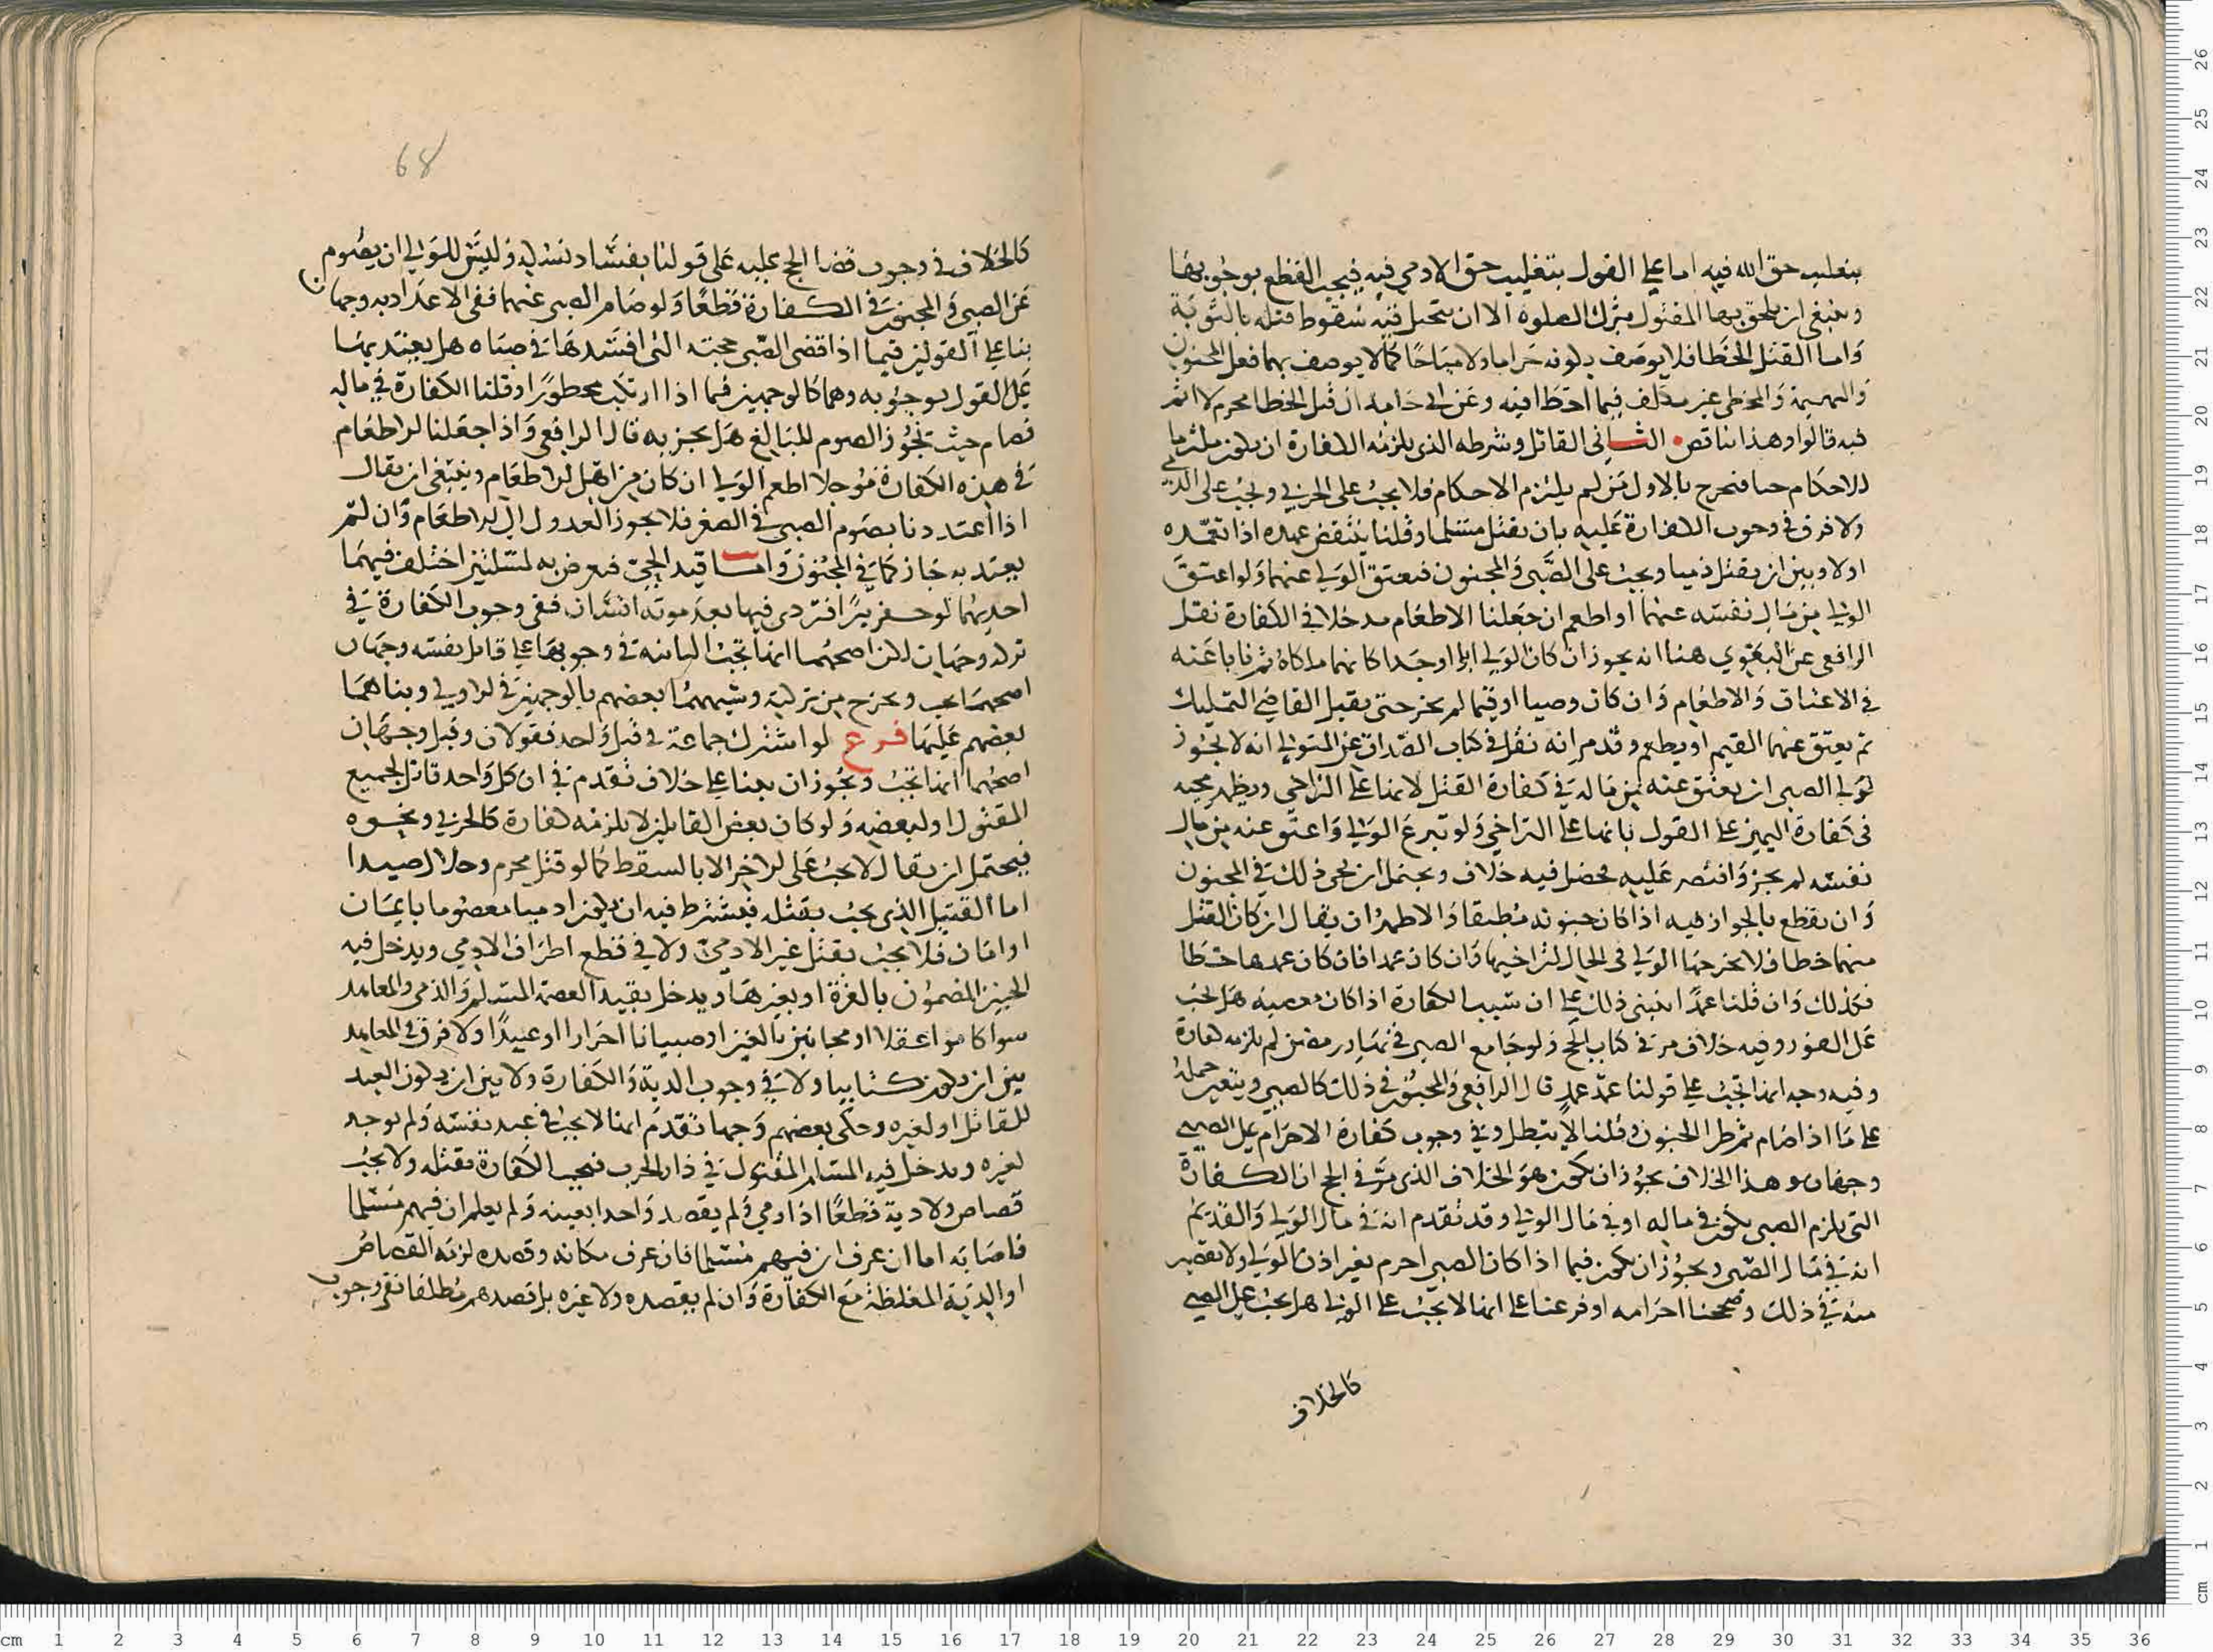 بتغليب حق الله فيه اما على القول بتغليب حق الادمي فيه فيجب القطع بوجوبها
وينبغي ان يلحق بها المقتول بترك الصلوة الا ان يتخيل فيه سقوط قتله بالتوبة
واما القتل الخطا فلا يوصف بكونه حراما ولا مباحا كما لا يوصف بهما فعل المجنون
والبهيمة والمخطي غير مكلف فيما اخطا فيه وعن ابي حامد ان قتل الخطا محرم لا اثم
فيه قالوا وهذا يناقض الثاني القاتل وشرطه الذي يلزمه الكفارة ان يكون ملتزما
للاحكام حيا فخرج بالاول من لم يلتزم الاحكام فلا يجب على الحربي ويجب على الذمي
ولا فرق في وجوب الكفارة عليه بان يقتل مسلما وقلنا ينتقض عهده اذا تعمده
اولا وبين ان يقتل ذميا ويجب على الصبي والمجنون فيعتق الولي عنهما ولو اعتق
الولي من مال نفسه عنهما او اطعم ان جعلنا الاطعام مدخلا في الكفارة نقل
الرافعي عن البغوي هنا انه يجوز ان كان الولي ابا او جدا كانهما ملكاه ثم نابا عنه
في الاعتاق والاطعام وان كان وصيا او قيما لم يجز حتى يقبل القاضي التمليك
ثم يعتق عنهما القيم او يطعم وقدم انه نقل في كتاب الصداق عن المتولي انه لا يجوز
لولي الصبي ان يعتق عنه من ماله في كفارة القتل لانها على التراخي ويظهر مجيه
في كفارة اليمين على القول بانها على التراخي ولو تبرع الولي واعتق عنه من مال
نفسه لم يجز واقتصر عليه فحصل فيه خلاف ويحتمل ان يجي ذلك في المجنون
وان يقطع بالجواز فيه اذا كان جنونه مطبقا والاظهر ان يقال ان كان القتل
منهما خطا فلا يخرجها الولي في الحال لتراخيها وان كان عمدا فان كان عمدها خطا
فكذلك وان قلنا عمدا انبنى ذلك على ان سبب الكفارة اذا كان معصية هل يجب
على الفور وفيه خلاف مر في كتاب الحج ولو جامع الصبي في نهار رمضان لم يلزمه كفارة
وفيه وجه انها تجب على قولنا عمده عمد قال الرافعي والمجنون في ذلك كالصبي ويتعين حمله
على ما اذا صام ثم طرا الجنون وقلنا لا يبطل وفي وجوب كفارة الاحرام على الصبي
وجهان وهذا الخلاف يجوز ان يكون هو الخلاف الذي مر في الحج ان الكفارة
التي يلزم الصبي يكون في ماله او في مال الولي وقد تقدم انه في مال الولي والقديم
انه في مال الصبي ويجوز ان يكون فيما اذا كان الصبي احرم بغير اذن الولي ولا تقصير
منه في ذلك وصححنا احرامه او فرعنا على انها لا تجب على الولي هل يجب على الصبي
كالخلاف
68
كالخلاف في وجوب قضا الحج عليه على قولنا بفساد نسكه وليس للولي ان يصوم
عن الصبي والمجنون في الكفارة قطعا ولو صام الصبي عنهما ففي الاعتداد به وجهان
بنا على القولين فيما اذا قضى الصبي حجته التي افسدها في صباه هل يعتد بها
على القول بوجوبه وهما كالوجهين فيما اذا ارتكب محظورا وقلنا الكفارة في ماله
فصام حيث تجوز الصوم للبالغ هل يجزيه قال الرافعي واذا جعلنا للاطعام
في هذه الكفارة مدخلا اطعم الولي ان كان من اهل الاطعام وينبغي ان يقال
اذا اعتددنا بصوم الصبي في الصغر فلا يجوز العدول الى الاطعام وان لم
يعتد به جاز كما في المجنون واما قيد الحي فيعرض به لمسلتين اختلف فيهما
احديهما لو حفر بيرا فتردى فيها بعد موته انسان ففي وجوب الكفارة في
تركته وجهان لكن اصحهما انها تجب الثانية في وجوبها على قاتل نفسه وجهان
اصحهما يجب ويخرج من تركته وشبههما بعضهم بالوجهين في الاولى وبناهما
بعضهم عليهما فرع لو اشترك جماعة في قتل واحد فقولان وقيل وجهان
اصحهما انها تجب ويجوز ان يبنا على خلاف تقدم في ان كل واحد قاتل لجميع
المقتول او لبعضه ولو كان بعض القاتلين لا يلزمه كفارة كالحربي ونحوه
فيحتمل ان يقال لا يجب على الاخر الا بالسقط كما لو قتل محرم وحلال صيدا
اما القتيل الذي يجب بقتله فيشترط فيه ان يكون ادميا معصوما بايمان
او امان فلا يجب بقتل غير الادمي ولا في قطع اطراف الادمي ويدخل فيه
الجنين المضمون بالغرة او بغيرها ويدخل بقيد العصمة المسلم والذمي والمعاهد
سوا كانوا عقلا او مجانين بالغين او صبيانا احرارا او عبيدا ولا فرق في المعاهد
بين ان يكون كتابيا ولا في وجوب الدية والكفارة ولا بين ان يكون العبد
للقاتل او لغيره وحكى بعضهم وجها تقدم انها لا يجب في عبد نفسه ولم يوجد
لغيره ويدخل فيه المسلم المقتول في دار الحرب فيجب الكفارة بقتله ولا يجب
قصاص ولا دية قطعا اذا رمي ولم يقصد واحدا بعينه ولم يعلم ان فيهم مسلما
فاصابه اما ان عرف ان فيهم مسلما فان عرف مكانه وقصده لزمه القصاص
او الدية المغلظة مع الكفارة وان لم يقصده ولا غيره بل قصدهم مطلقا نفي وجوب